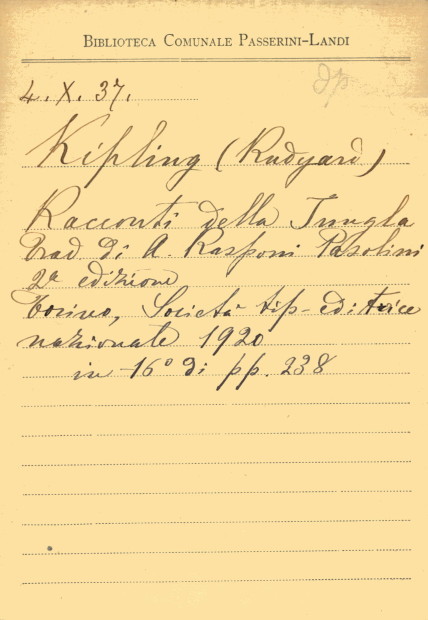 BIBLIOTECA COMUNALE PASSERINI-LANDI
4. X. 37.
Kipling (Rudyard)
Racconti della Jungla
trad di A. Rasponi Pasolini
2ª edizione
Torino, Società tip-editrice
nazionale 1920
in 16° di pp. 238